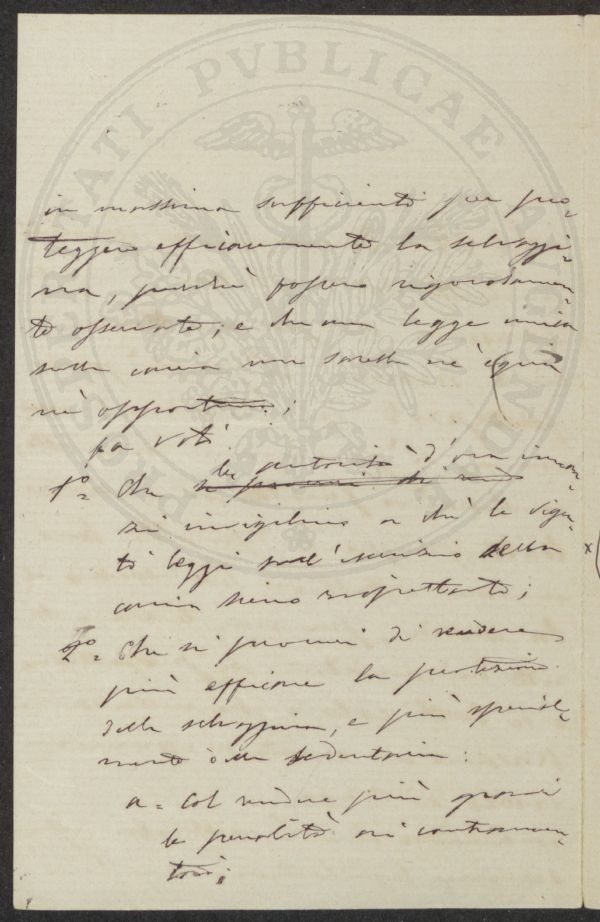 PROSPERITATI PVBLICAE AVGENDAE
in massima sufficienti per pro-
teggere efficacemente la selvaggi-
na, purchè fossero rigorosamen-
te osservate; e che una legge unica
sulla caccia non sarebbe nè equa
nè opportuna;
fa voti
1º= Che le autorità d'ora innan-
zi invigilino a chè le vigen-
ti leggi sull'esercizio della
caccia sieno rispettate;
2º= Che si procuri di rendere
più efficace la protezione
della selvaggina, e più special-
mente della sedentaria:
a= col rendere più gravi
le penalità ai contravven-
tori;
x